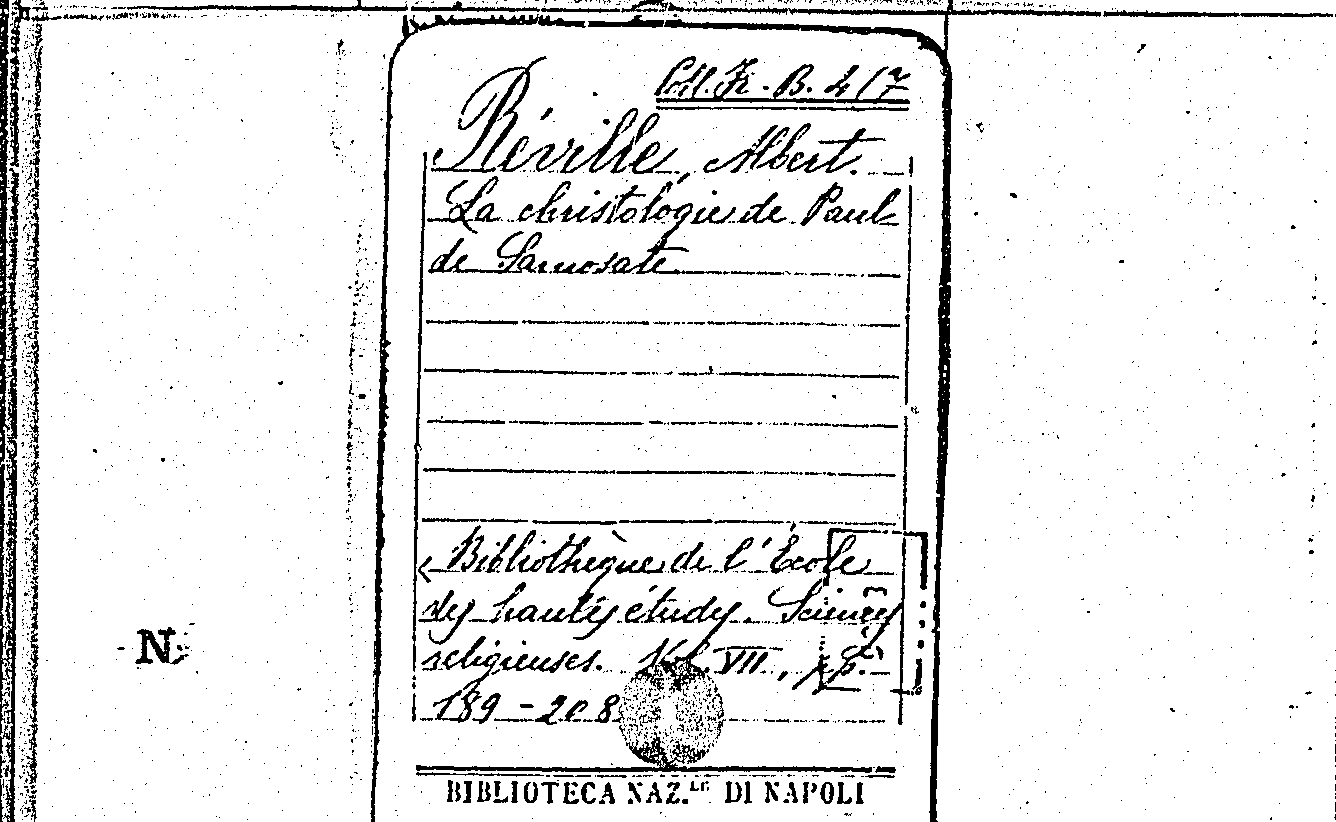 Coll. Fr. B. 4/7
Réville, Albert.
La christologie de Paul
de Samosate
Bibliothèque de l'École
des hautes études. Sciences
religieuses. Vol. VII, pp.
189-208
N
BIBLIOTECA NAZ.LE DI NAPOLI